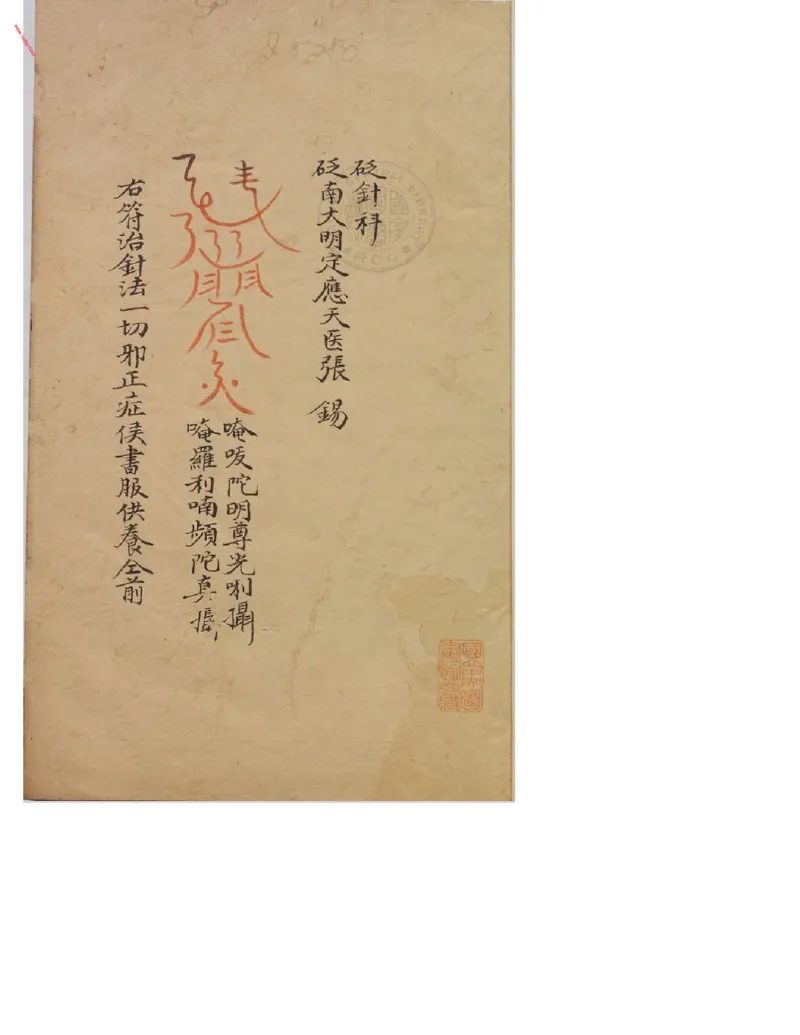 砭針科
砭南大明定應天医張 錫
唵吱陀明尊光唎攝
唵羅利喃頻陀真攝
右符治針法一切邪正症侯書服供養仝前